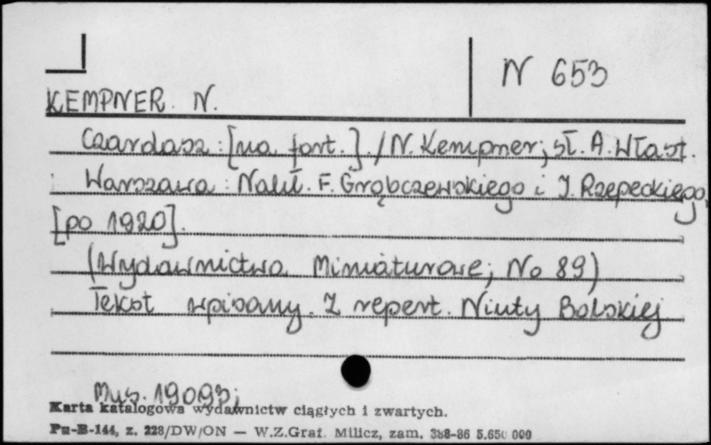 N 653
KEMPNER. N.
Czardasz : [na fort.] / N. Kempner; sł. A. Włast.
Warszawa : Nakł. F. Grąbczewskiego i J. Rzepeckiego,
[po 1920].
(Wydawnictwo Miniaturowe; No 89)
Tekst wpisany. Z repert. Niuty Bolskiej
Mus. 19093;
Karta katalogowa wydawnictw ciągłych i zwartych.
Pu-B-144, z. 228/DW/ON — W.Z.Graf. Milicz, zam. 388-86 5.650 000